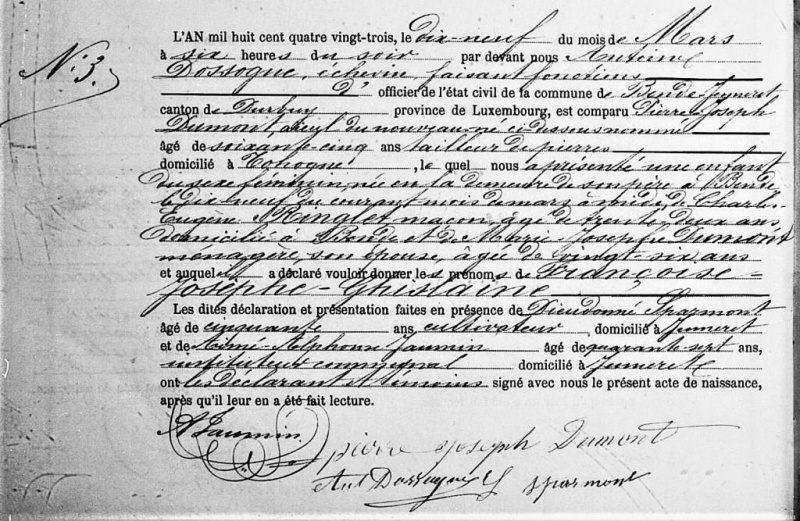 N° 3.
L'AN mil huit cent quatre vingt-trois, le dix-neuf du mois de Mars
à six heures du soir par devant nous Antoine
Dossogne, échevin, faisant fonctions
d' officier de l'état civil de la commune de Bende-Jeneret
canton de Durbuy province de Luxembourg, est comparu Pierre-Joseph
Dumont, aïeul du nouveau-né ci-dessous nommé
âgé de soixante-cinq ans tailleur de pierres
domicilié à Tohogne, le quel nous a présenté une enfant
du sexe féminin, née en la demeure de son père à Bende
le dix-neuf du courant mois de mars à midi, de Charles
Eugène Ringlet maçon, âgé de trente-deux ans
domicilié à Bende et de Marie-Josephe Dumont
ménagère, son épouse, âgée de vingt-six ans
et auquel a déclaré vouloir donner les prénoms de Françoise-
Josèphe-Ghislaine
Les dites déclaration et présentation faites en présence de Dieudonné Sparmont
âgé de cinquante ans, cultivateur, domicilié à Jeneret
et de Aimé-Alphonse Jaumin âgé de quarante sept ans,
instituteur communal domicilié à Jeneret
ont les déclarant et témoins signé avec nous le présent acte de naissance,
après qu'il leur en a été fait lecture.
A Jaumin
pierre joseph Dumont
Ant Dossogne
sparmont